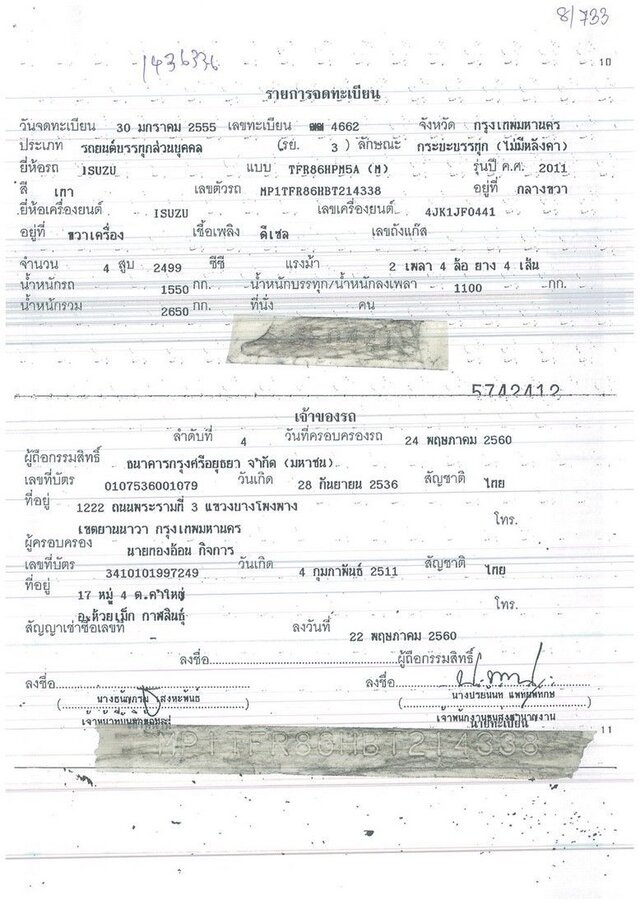 8/733
1436336
10
รายการจดทะเบียน
วันจดทะเบียน 30 มกราคม 2555 เลขทะเบียน 4662 จังหวัด กรุงเทพมหานคร
ประเภท รถยนต์บรรทุกส่วนบุคคล (รย. 3 ) ลักษณะ กระบะบรรทุก (ไม่มีหลังคา)
ยี่ห้อรถ ISUZU แบบ TFR86HPM5A (M) รุ่นปี ค.ศ. 2011
สี เทา เลขตัวรถ MP1TFR86HBT214338 อยู่ที่ กลางขวา
ยี่ห้อเครื่องยนต์ ISUZU เลขเครื่องยนต์ 4JK1JF0441
อยู่ที่ ขวาเครื่อง เชื้อเพลิง ดีเซล เลขถังแก๊ส
จำนวน 4 สูบ 2499 ซีซี แรงม้า 2 เพลา 4 ล้อ ยาง 4 เส้น
น้ำหนักรถ 1550 กก. น้ำหนักบรรทุก/น้ำหนักลงเพลา 1100 กก.
น้ำหนักรวม 2650 กก. ที่นั่ง คน
5742412
เจ้าของรถ
ลำดับที่ 4 วันที่ครอบครองรถ 24 พฤษภาคม 2560
ผู้ถือกรรมสิทธิ์ ธนาคารกรุงศรีอยุธยา จำกัด (มหาชน)
เลขที่บัตร 0107536001079 วันเกิด 28 กันยายน 2536 สัญชาติ ไทย
ที่อยู่ 1222 ถนนพระรามที่ 3 แขวงบางโพงพาง
เขตยานนาวา กรุงเทพมหานคร โทร.
ผู้ครอบครอง นายทองอ้อน กิจการ
เลขที่บัตร 3410101997249 วันเกิด 4 กุมภาพันธ์ 2511 สัญชาติ ไทย
ที่อยู่ 17 หมู่ 4 ต.คำใหญ่
อ.ห้วยเม็ก กาฬสินธุ์ โทร.
สัญญาเช่าซื้อเลขที่ - ลงวันที่ 22 พฤษภาคม 2560
ลงชื่อ ผู้ถือกรรมสิทธิ์
ลงชื่อ ลงชื่อ
นายทะเบียน
11
MP1TFR86HBT214338